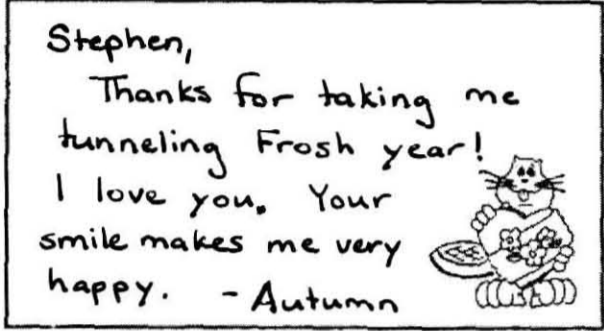 Stephen,
Thanks for taking me
tunneling Frosh year!
I love you. Your
smile makes me very
happy. - Autumn